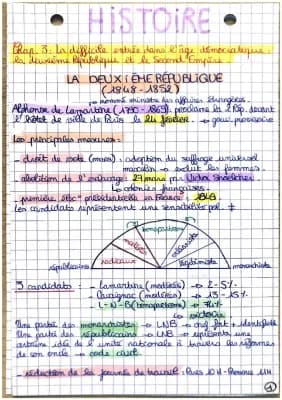 HISTOIRE
Chap. 3: La difficile entrée dans l'âge démocratique:
la deuxième République et le Second Empire.
LA DEUXIÈME RÉPUBLIQUE
(1848-1852)
↳ nommé ministre des affaires étrangères.
Alphonse de Lamartine (1790-1869) proclame la 2 Rép. devant
l'Hôtel de ville de Paris le 24 février. → gouv. provisoire
Les principales mesures:
- droit de vote (mars): adoption du suffrage universel
masculin → exclut les femmes.
- abolition de l'esclavage: 27 mars par Victor Schoelcher
↳ colonies françaises.
- première élec° présidentielle en France: 1848
Les candidats représentent une sensibilité pol. +
bonapartistes
modérés
orléaniste
radicaux
légitimiste
républicains
monarchiste
5 candidats: - Lamartine (modérés) →
- Cavaignac (modérés) →
- L-N-B (bonapartiste) → 74%
↳ victoire
Une partie des monarchistes → LNB →
Une partie des républicains → LNB → représente une
certaine idée de l'unité nationale à travers les réformes
de son oncle → code civil
- réduction de la journée de travail: Paris 10H - Province 11H
1